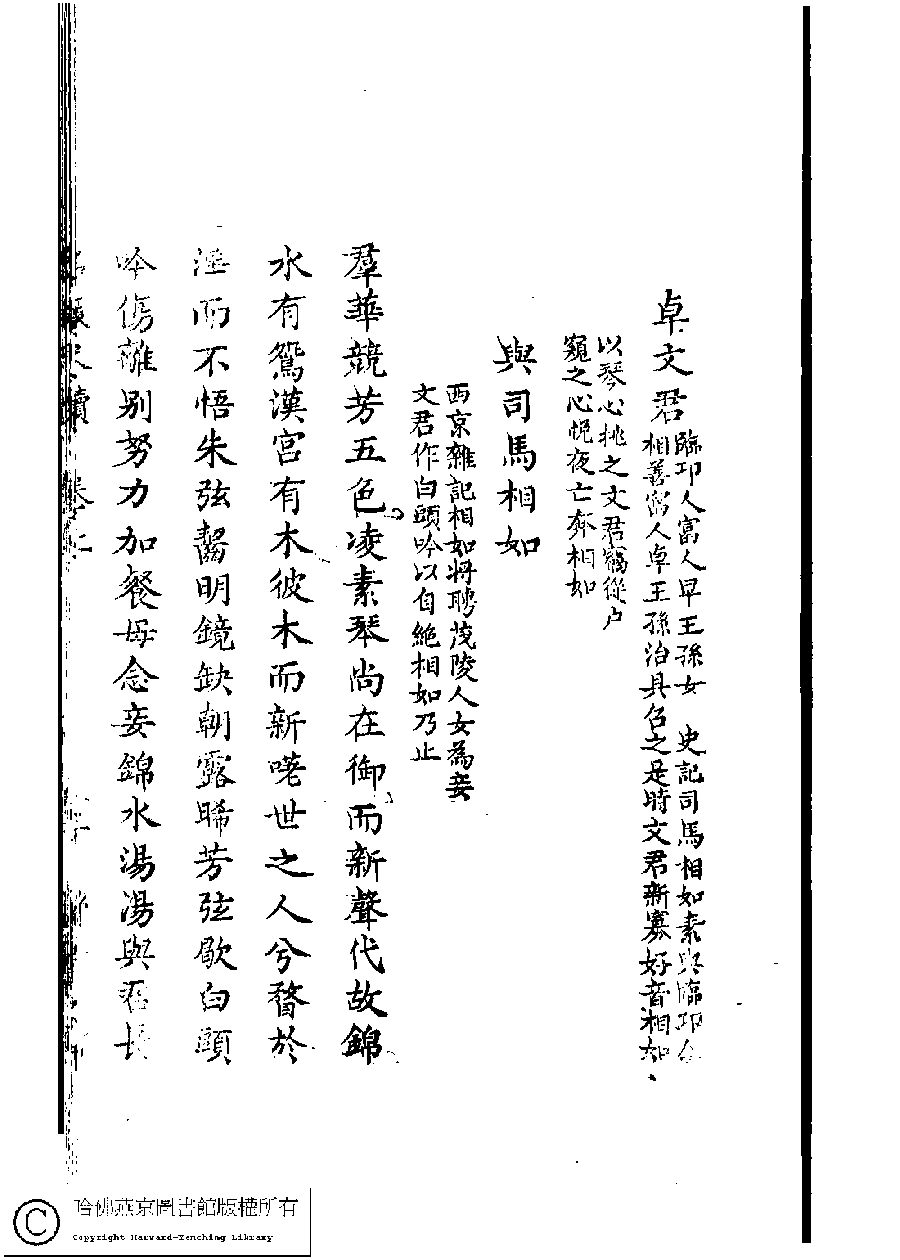 卓文君
臨邛人富人早王孫女　史記司馬相如素與臨邛令
相善富人卓王孫治具召之是時文君新寡好音相如
以琴心挑之文君竊從户
窺之心悅夜亡奔相如
與司馬相如
西京雜記相如將聘茂陵人女為妾
文君作白頭吟以自絶相如乃止
羣華競芳五色凌素琴尚在御而新聲代故錦
水有鴛漢宮有木彼木而新嗟世之人兮瞀於
淫而不悟朱弦齧明鏡缺朝露晞芳弦歇白頭
吟傷離别努力加餐毋念妾錦水湯湯與君長
尺牘
哈佛燕京圖書館版權所有
Copyright Harvard-Yenching Library